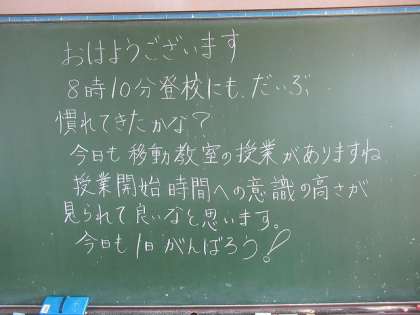 おはようございます
8時10分登校にも、だいぶ
慣れてきたかな?
今日も移動教室の授業がありますね
授業開始時間への意識の高さが
見られて良いなと思います。
今日も1日がんばろう!